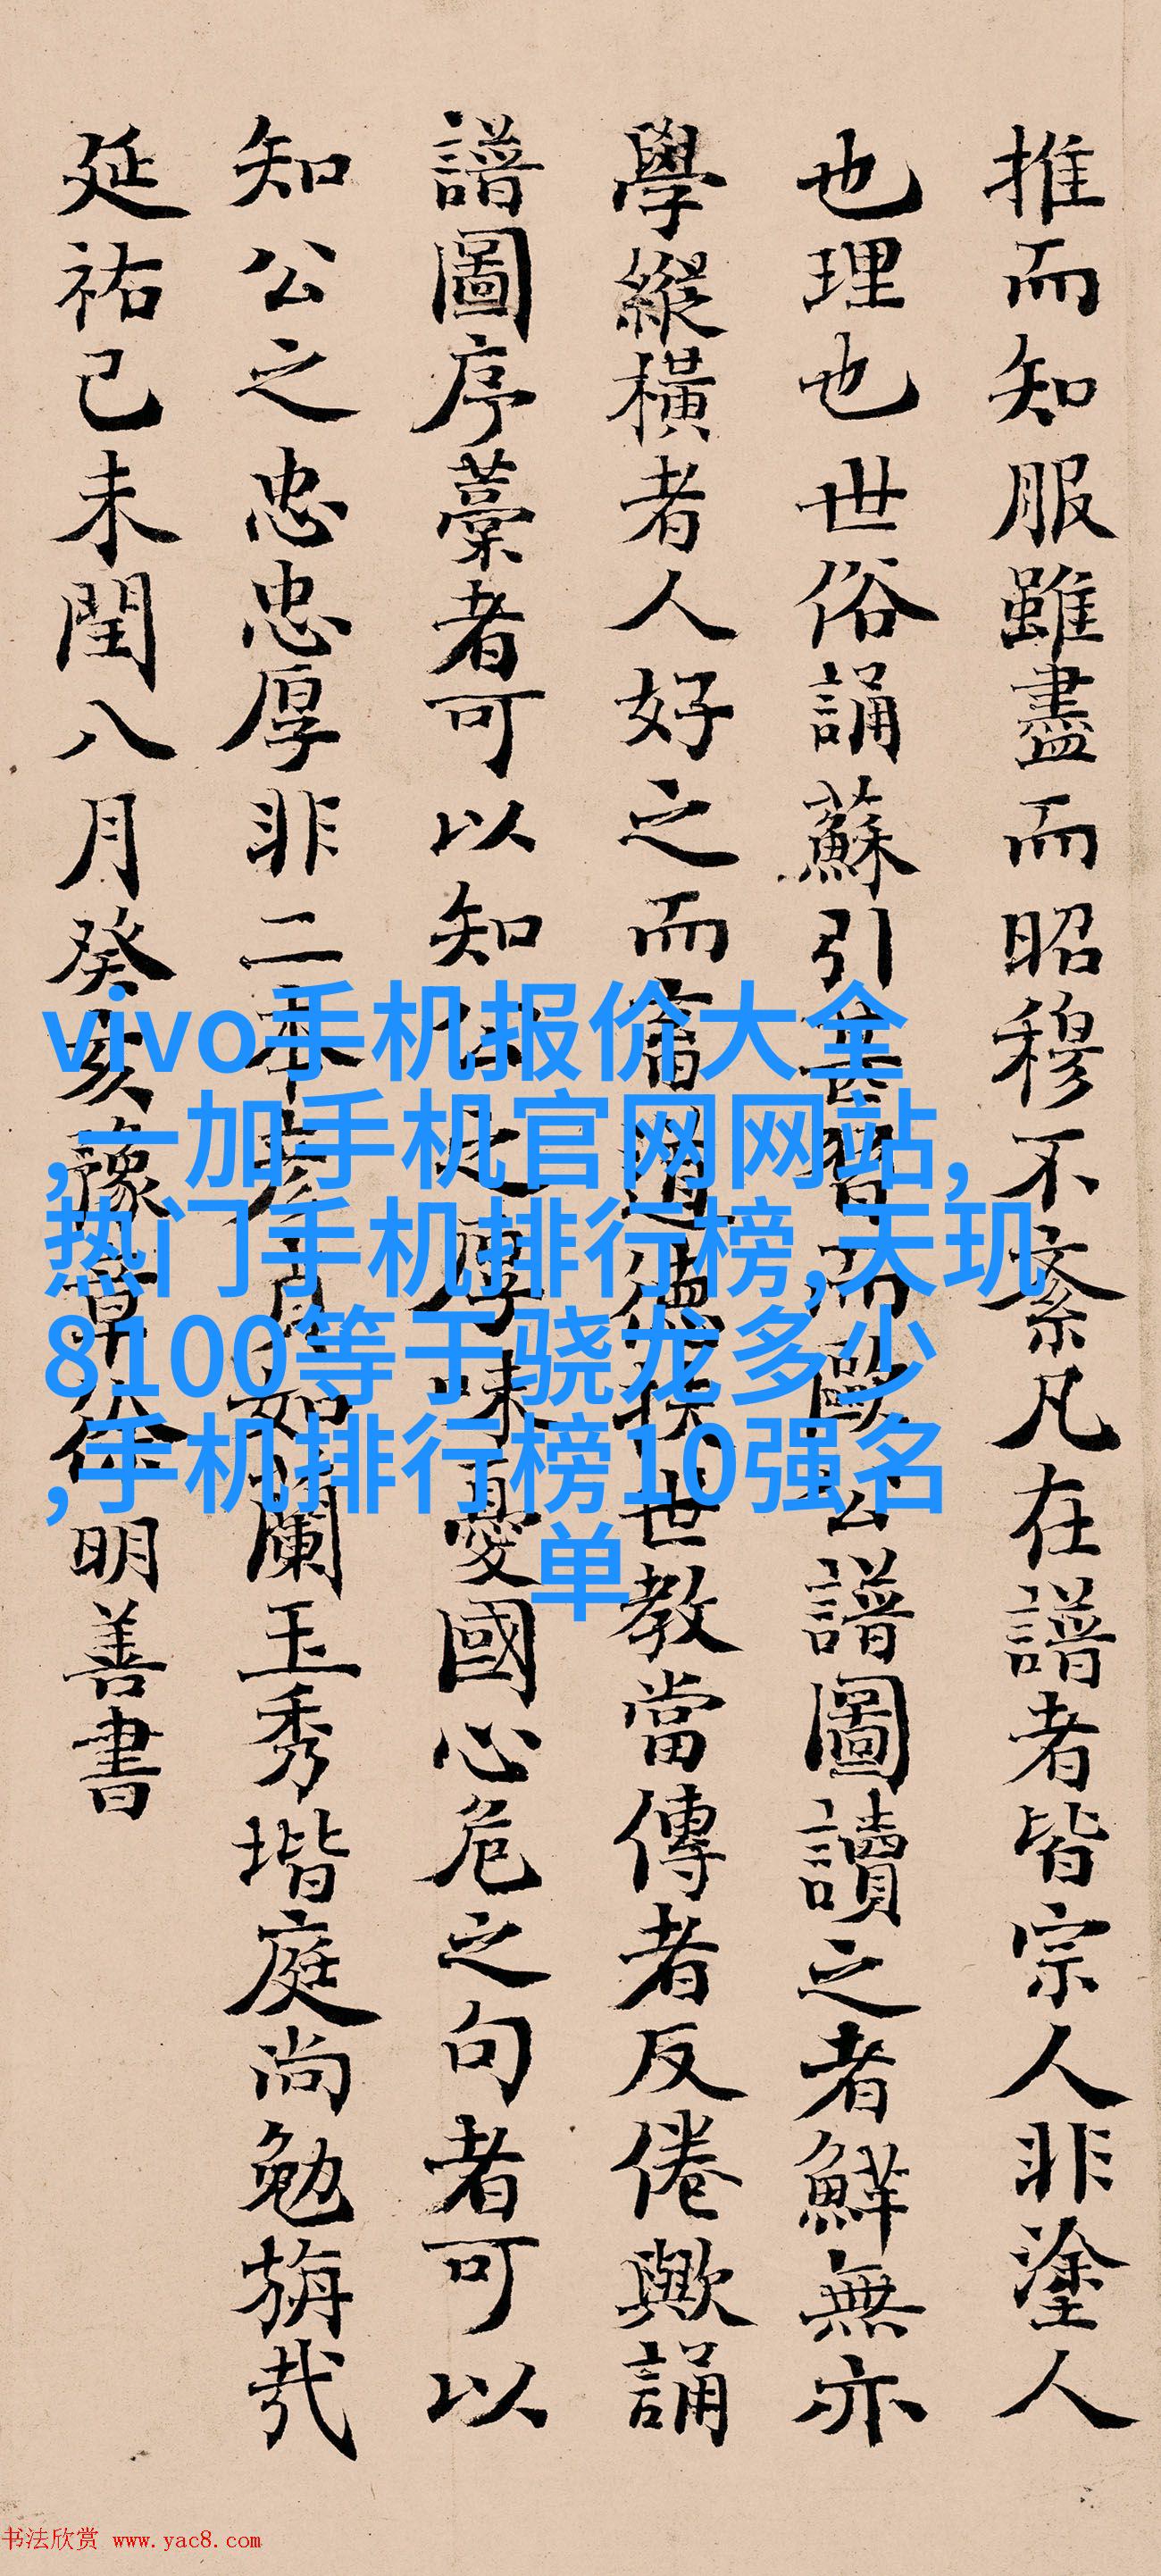 推而知服雖盡而昭穆不紊凡在譜者皆宗人非塗人
也理也世俗誦蘇引甚習而歐公譜圖讀之者鮮無亦
學縱橫者人好之而德扶世教當傳者反倦歟誦
譜圖序藁者可以知之厚味憂國心危之句者可以
知公之忠忠厚非二本如蘭玉秀堦庭尚勉旃哉
延祐己未閏八月癸亥豫章徐明善書
vivo手机报价大全
,一加手机官网网站,
热门手机排行榜,天玑
8100等于骁龙多少
,手机排行榜10强名
单
书法欣赏 www.yac8.com